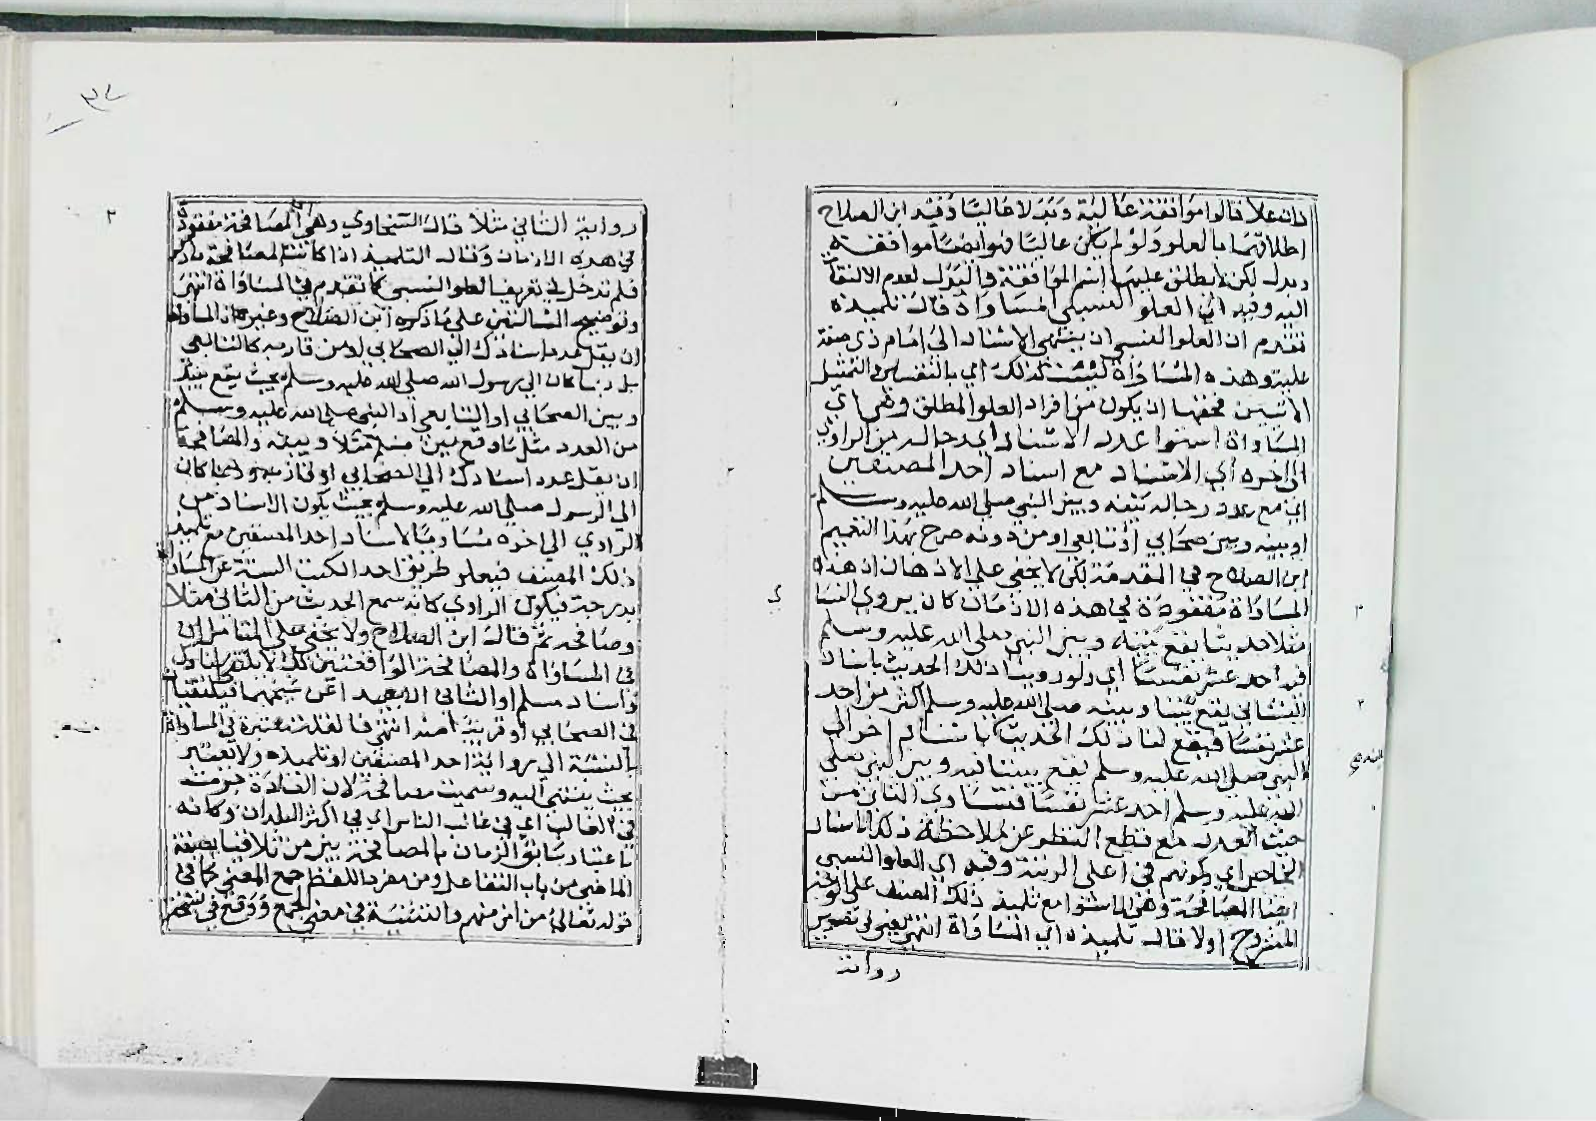 فان علا قالوا موافقة عالية وبدلا عاليا وقيد ابن الصلاح
اطلاقهما بالعلو ولو لم يكن عاليا فهو ايضا موافقة
وبدل لكن لا يطلق عليهما اسم الموافقة والبدل لعدم الالتفات
اليه وفيه اي العلو النسبي المساواة قال تلميذه
تقدم ان العلو النسبي ان ينتهي الاسناد الى امام ذي صفة
علية وهذه المساواة ليست كذلك اي بالتفسير والتمثيل
الآتيين فحقها ان يكون من افراد العلو المطلق وهي اي
المساواة استوا عدد الاسناد اي رجاله من الراوي
الى اخره اي الاسناد مع اسناد احد المصنفين
اي مع عدد رجاله بينه وبين النبي صلى الله عليه وسلم
او بينه وبين صحابي او تابعي او من دونه صرح بهذا التعميم
ابن الصلاح في المقدمة لكن لا يخفى على الاذهان ان هذه
المساواة مفقودة في هذه الازمان كان يروي النسا
مثلا حديثا يقع بينه وبين النبي صلى الله عليه وسلم
فيه احد عشر نفسا اي ذلك الحديث باسناد
النسائي يقع بيننا وبينه صلى الله عليه وسلم اكثر من احد
عشر نفسا فيقع لنا ذلك الحديث باسناد اخر الى
النبي صلى الله عليه وسلم يقع بيننا فيه وبين النبي صلى
الله عليه وسلم احد عشر نفسا فنساوي النسائي من
حيث العدد مع قطع النظر عن ملاحظة ذلك الاسناد
الخاص اي وكونهم في اعلى الرتبة وفيه اي العلو النسبي
ايضا المصافحة وهي الاستوا مع تلميذ ذلك المصنف على الوجه
المشروح اولا قال تلميذه اي المساواة انتهى يعني في تصوير
رواية
٣٧
رواية الثاني مثلا قال السخاوي وهي اي المصافحة مفقودة
في هذه الازمان وقال التلميذ اذا كانت المصافحة
فلم تدخل في تعريف العلو النسبي كما تقدم في المساواة انتهى
وتوضيح المسالتين على ما ذكره ابن الصلاح وغيره ان المساواة
ان يقل عدد اسنادك الى الصحابي او من قاربه كالتابعي
بل ربما كان الى رسول الله صلى الله عليه وسلم بحيث يقع بينك
وبين الصحابي او التابعي او النبي صلى الله عليه وسلم
من العدد مثل ما وقع بين مسلم مثلا وبينه والمصافحة
ان يقل عدد اسنادك الى الصحابي او نحوه وربما كان
الى الرسول صلى الله عليه وسلم بحيث يكون الاسناد من
الراوي الى اخره مساويا لاسناد احد المصنفين مع تلميذ
ذلك المصنف فيعلو طريق احد الكتب الستة عن المساواة
بدرجة فيكون الراوي كانه سمع الحديث من الثاني مثلا
وصافحه ثم قال ابن الصلاح ولا يخفى على المتامل ان
في المساواة والمصافحة الواقعتين لك لا يلتقي اسنادك
واسناد مسلم او الثاني الا بعيدا عن شيخهما فيلتقيان
في الصحابي او قريبا منه انتهى
بالنسبة الى رواية احد المصنفين او تلميذه ولا يعتبر
بحيث ينتهي اليه وسميت مصافحة لان العادة جرت
في الغالب اي في غالب الناس او في اكثر البلدان وكانه
باعتبار سابق الزمان بالمصافحة بين من تلاقيا بصيغة
الماضي من باب التفاعل ومن مفرد اللفظ جمع المعنى كما في
قوله تعالى من امن منهم والتثنية في معنى الجمع ووقع في نسخة